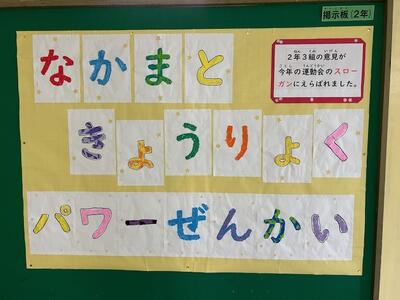 掲示板(2年)
なかまと
きょうりょく
パワーぜんかい
2年3組の意見が
今年の運動会のスロー
ガンにえらばれました。